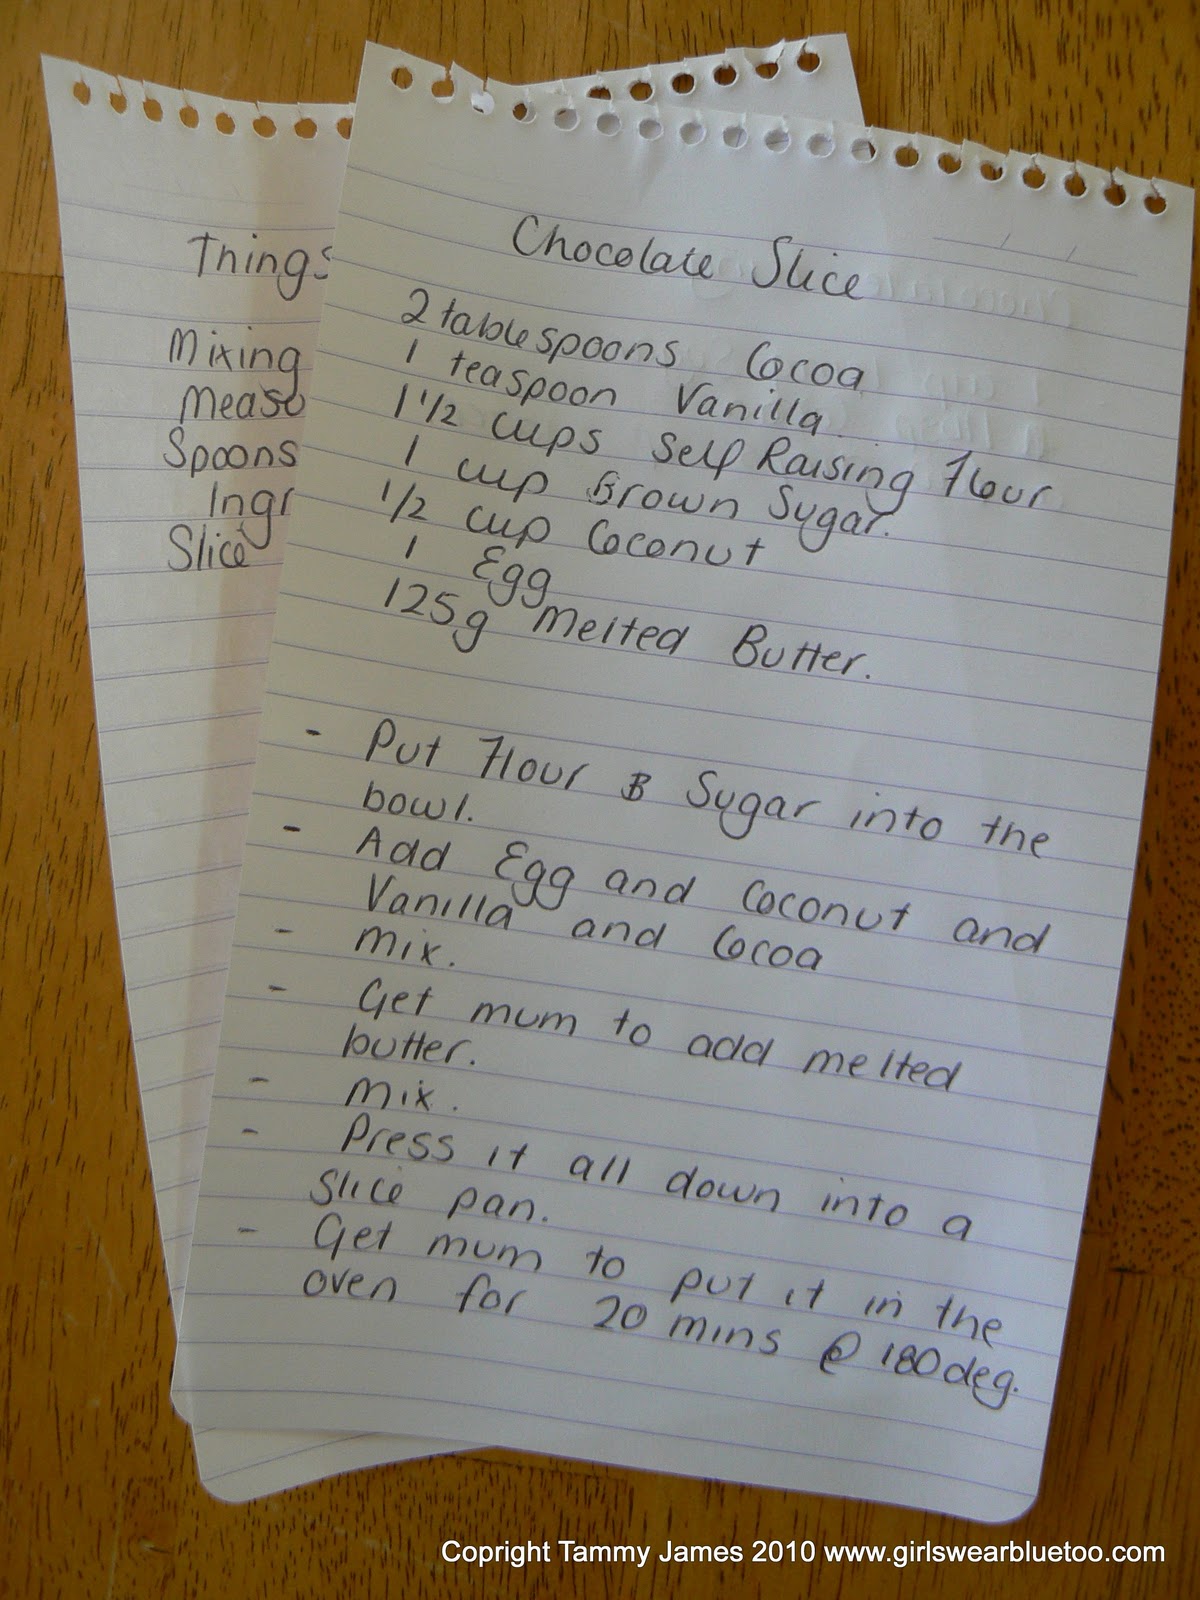 Things
Mixing
Measu
Spoons
Ingr
Slice
Chocolate Slice
2 tablespoons Cocoa
1 teaspoon Vanilla.
1 1/2 cups Self Raising Flour
1 cup Brown Sugar.
1/2 cup Coconut
1 Egg
125g Melted Butter.
- Put Flour & Sugar into the
bowl.
- Add Egg and Coconut and
Vanilla and Cocoa
- Mix.
- Get mum to add melted
butter.
- Mix.
- Press it all down into a
Slice pan.
- Get mum to put it in the
oven for 20 mins @ 180deg.
Copright Tammy James 2010 www.girlswearbluetoo.com